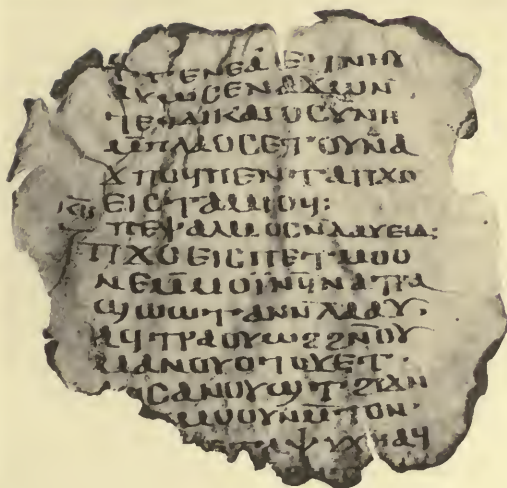 ⲅⲉⲛⲉⲁ ⲉⲧⲛⲏⲩ
ⲁⲩⲱ ⲥⲉⲛⲁϫⲱ ⲛ
ⲧⲉϥⲇⲓⲕⲁⲓⲟⲥⲩⲛⲏ
ⲙ̅ⲡⲗⲁⲟⲥ ⲉⲧⲟⲩⲛⲁ
ϫⲡⲟϥ ⲡⲉⲛⲧⲁⲡϫⲟ
ⲕ̅ⲃ̅ ⲉⲓⲥ ⲧⲁⲙⲓⲟϥ:
ⲡⲉⲯⲁⲗⲙⲟⲥ ⲛⲇⲁⲩⲉⲓⲇ:
ⲡϫⲟⲉⲓⲥ ⲡⲉⲧⲙⲟⲟ
ⲛⲉ ⲙ̅ⲙⲟⲓ ⲛ̅ϥⲛⲁⲧⲣⲁ
ϣⲱⲱⲧ ⲁⲛ ⲛⲗⲁⲁⲩ·
ⲁϥⲧⲣⲁⲟⲩⲱϩ ϩⲛ̅ⲟⲩ
ⲙⲁ ⲛⲟⲩⲟⲧⲟⲩⲉⲧ·
ⲥⲁⲛⲟⲩϣⲧ ϩⲓϫⲛ
ⲙⲟⲟⲩ ⲛⲙ̅ⲧⲟⲛ·
ⲧⲁⲯⲩⲭⲏ ⲁϥ